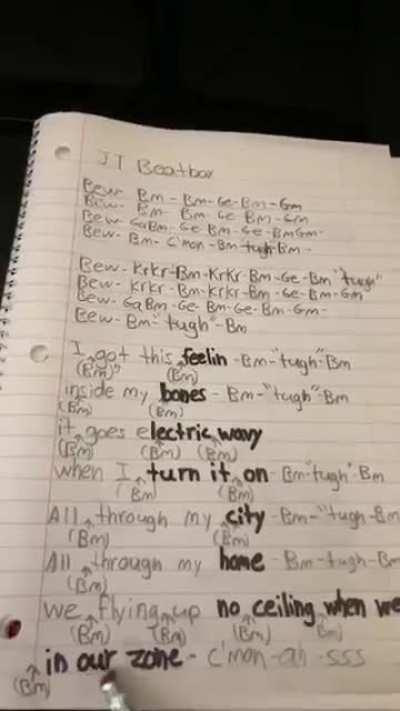 JT Beatbox
Bew- Bm - Bm-Ge-Bm-Gm
Bew- Bm- Bm- Ge Bm-Gm
Bew- GaBm-Ge Bm-Ge-BmGm-
Bew- Bm- C'mon -Bm tugh Bm-
Bew-KrKr-Bm-KrKr-Bm-Ge-Bm "tugh"
Bew- Krkr-Bm-Krkr-Bm-Ge-Bm-Gm
Bew-GaBm-Ge-Bm-Ge-Bm-Gm-
Bew-Bm-"tugh"-Bm
I got this feelin -Bm-"tugh"-Bm
(Bm)" (Bm)
inside my bones -Bm-"tugh"-Bm
(Bm) (Bm)
it goes electric wavy
(Bm) (Bm) (Bm)
when I turn it on -Bm-"tugh"-Bm
(Bm) (Bm)
All through my city -Bm-"tugh-Bm
(Bm) (Bm)
All through my home -Bm-tugh-Bm
(Bm)
we flying up no ceiling when we
(Bm) (Bm) (Bm) (Bm)
in our zone - c'mon-ah -sss
(Bm)